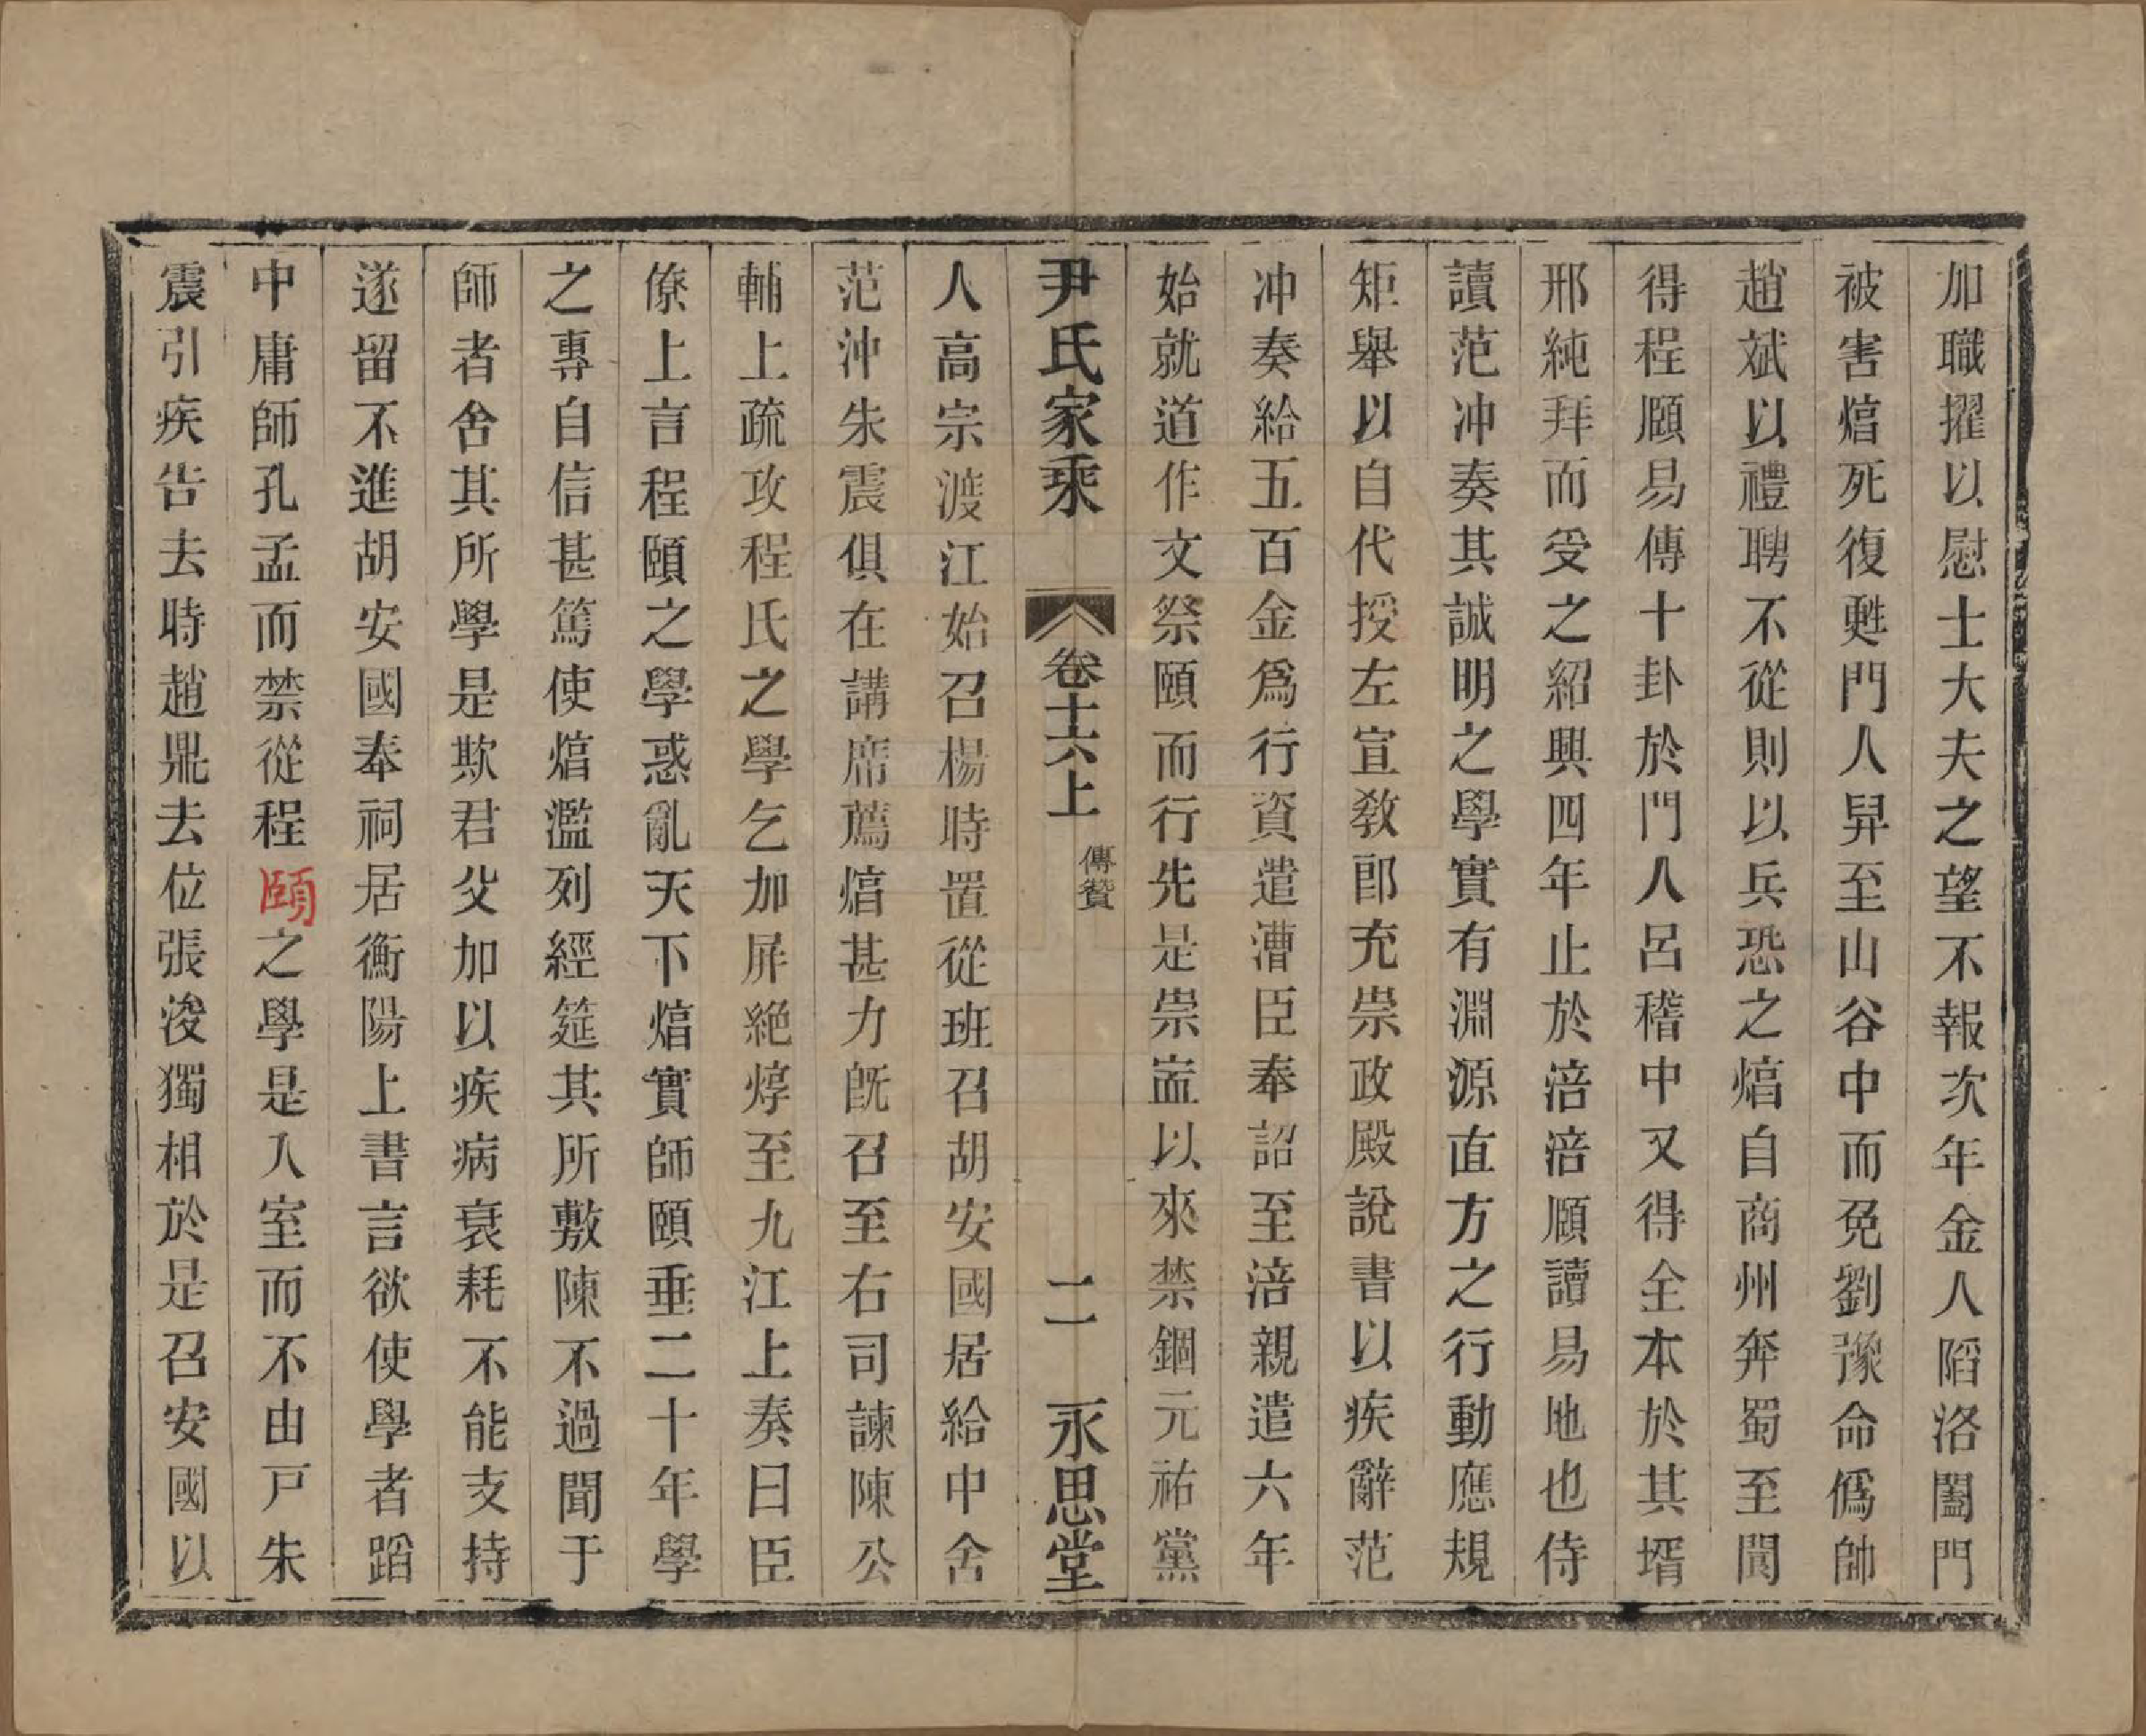 加職擢以慰士大夫之望不報次年金人陷洛闔門
被害焞死復甦門人舁至山谷中而免劉豫命僞帥
趙斌以禮聘不從則以兵恐之焞自商州奔蜀至閬
得程頤易傳十卦於門人呂稽中又得全本於其壻
邢純拜而受之紹興四年止於涪涪頤讀易地也侍
讀范冲奏其誠明之學實有淵源直方之行動應規
矩舉以自代授左宣教郎充崇政殿說書以疾辭范
冲奏給五百金爲行資遣漕臣奉詔至涪親遣六年
始就道作文祭頤而行先是崇寍以來禁錮元祐黨
尹氏家乘 卷十六上 傳贊 二 永思堂
人高宗渡江始召楊時置從班召胡安國居給中舍
范沖朱震俱在講席薦焞甚力既召至右司諫陳公
輔上疏攻程氏之學乞加屏絶焞至九江上奏曰臣
僚上言程頤之學惑亂天下焞實師頤垂二十年學
之專自信甚篤使焞濫列經筵其所敷陳不過聞于
師者舍其所學是欺君父加以疾病衰耗不能支持
遂留不進胡安國奉祠居衡陽上書言欲使學者蹈
中庸師孔孟而禁從程頤之學是入室而不由戸朱
震引疾告去時趙鼎去位張浚獨相於是召安國以